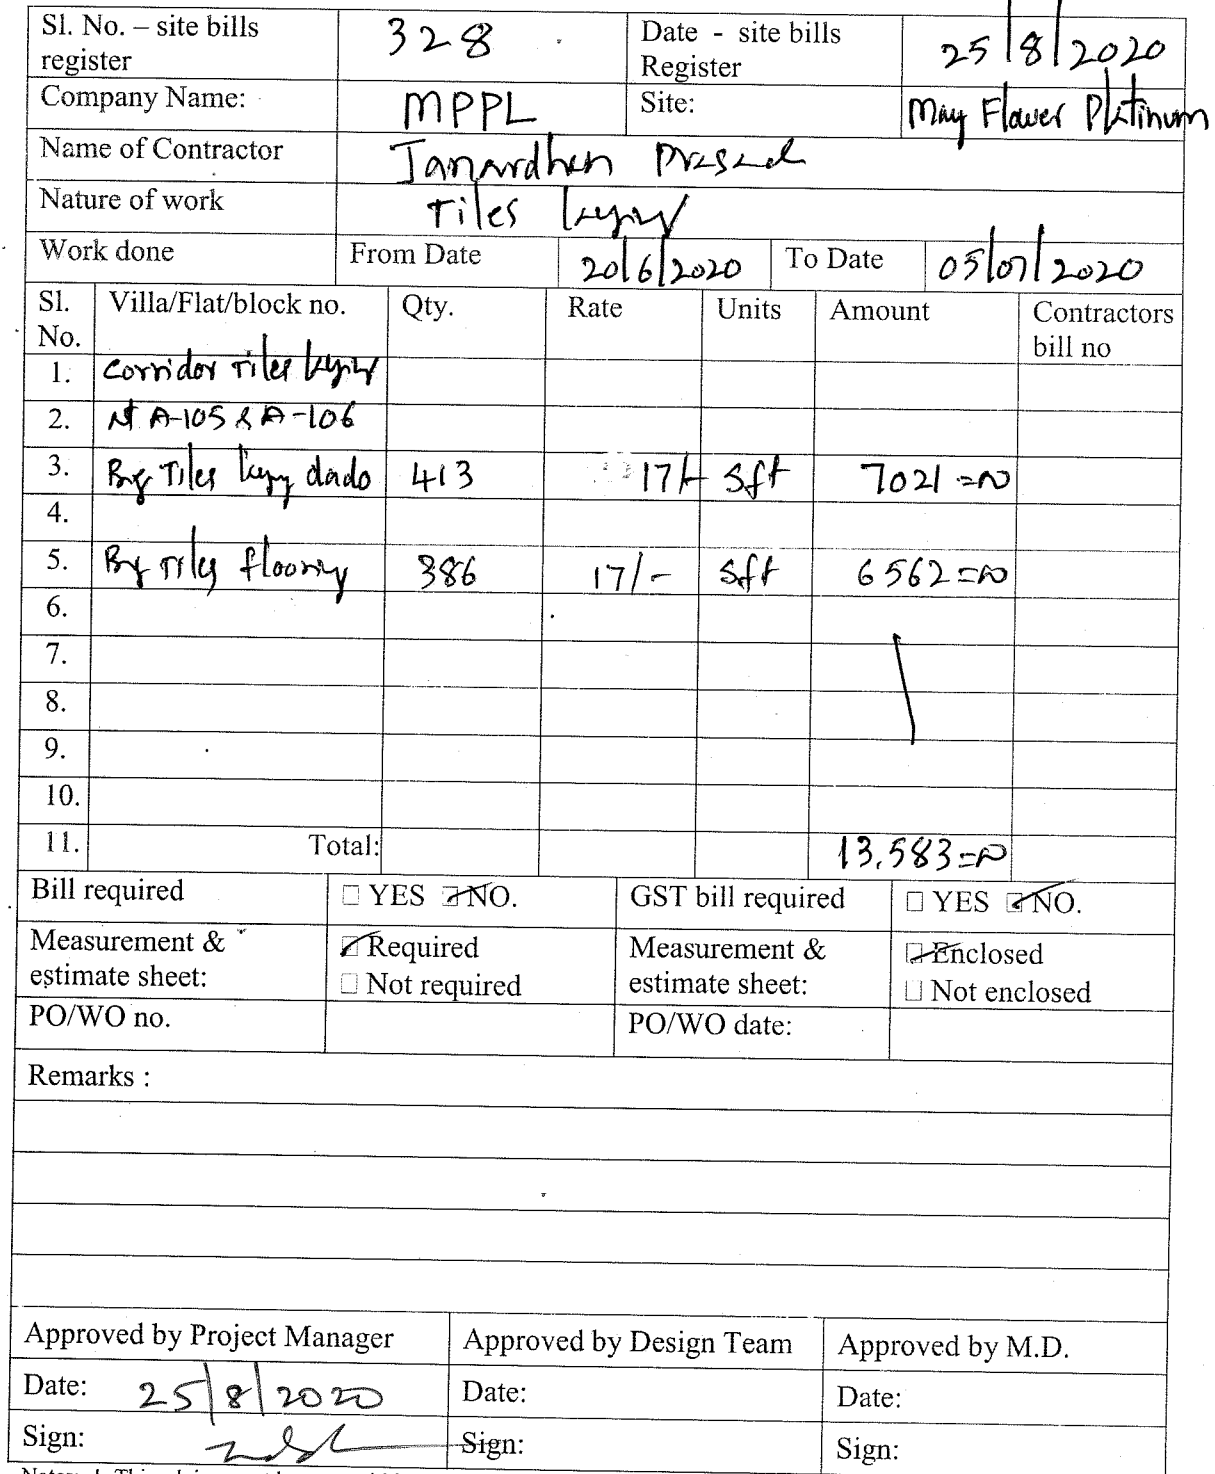 Sl. No. – site bills register 328 Date - site bills Register 25/8/2020
Company Name: MPPL Site: May Flower Platinum
Name of Contractor Janardhan Prasad
Nature of work Tiles laying
Work done From Date 20/6/2020 To Date 05/07/2020
Sl. No. Villa/Flat/block no. Qty. Rate Units Amount Contractors bill no
1. Corridor Tiles laying
2. At A-105 & A-106
3. Big Tiles laying dado 413 17/- Sft 7021=00
4.
5. Big Tiles flooring 386 17/- Sft 6562=00
6.
7.
8.
9.
10.
11. Total: 13,583=00
Bill required ☐ YES ☑ NO. GST bill required ☐ YES ☑ NO.
Measurement & estimate sheet: ☑ Required ☐ Not required Measurement & estimate sheet: ☑ Enclosed ☐ Not enclosed
PO/WO no. PO/WO date:
Remarks :
Approved by Project Manager Approved by Design Team Approved by M.D.
Date: 25/8/2020 Date: Date:
Sign: Sign: Sign: